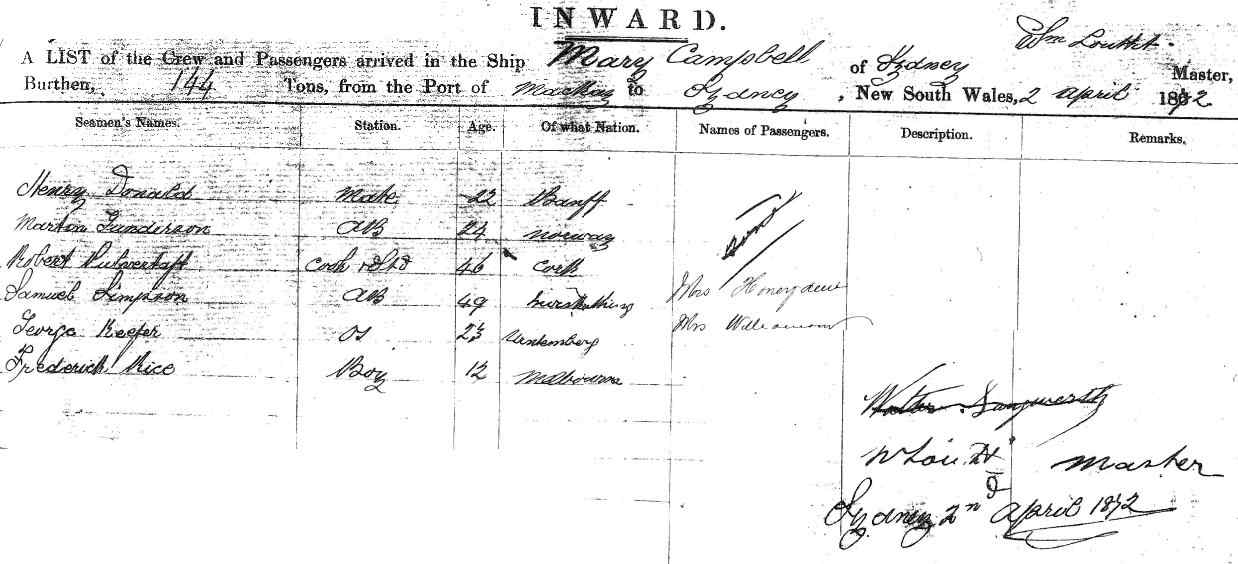 INWARD.
Wm Louttit
A LIST of the Crew and Passengers arrived in the Ship Mary Campbell of Sydney Master,
Burthen, 144 Tons, from the Port of Mackay to Sydney, New South Wales, 2 April 1872
Seamen's Names. Station. Age. Of what Nation. Names of Passengers. Description. Remarks.
Henry Donald Mate 22 Banff
Martin Gunderson AB 24 Norway
Robert Pulvertaft Cook & Std 46 Cork
Samuel Simpson AB 49 Mrs Honeydew
George Keefer OS 23 Mrs Williamson
Frederick Rice Boy 12 Melbourne
W Louttit Master
Sydney 2nd April 1872